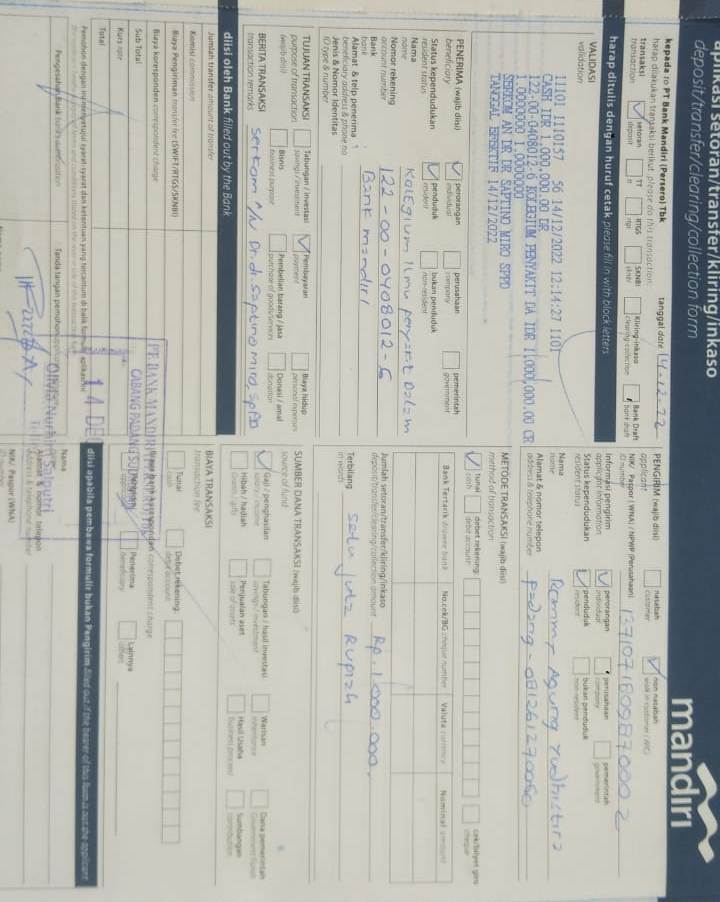 aplikasi setoran/transfer/kliring/inkaso
deposit/transfer/clearing/collection form
mandiri
kepada PT Bank Mandiri (Persero) Tbk
tanggal date 14-12-22
harap dilakukan transaksi berikut please do this transaction:
transaksi transaction
setoran deposit
TT tt
RTGS
SKNBI
Kliring-inkaso clearing-collection
Bank Draft bank draft
harap ditulis dengan huruf cetak please fill in with block letters
VALIDASI
validation
11101 1110157 56 14/12/2022 12:14:27 1101
CASH IDR 1,000,000.00 IDR
122-00-0408012-5 KOLEGIUM PENYAKIT DA IDR 1,000,000.00 CR
1.0000000 1.0000000
SERKOM AN DR DR SAPTINO MIRO SPPD
TANGGAL EFEKTIF 14/12/2022
PENERIMA (wajib diisi)
beneficiary
perorangan individual
perusahaan company
pemerintah government
Status kependudukan
resident status
penduduk resident
bukan penduduk non-resident
Nama
name
Kolegium Ilmu penyakit Dalam
Nomor rekening
account number
122-00-0408012-5
Bank
bank
Bank mandiri
Alamat & telp penerima
beneficiary address & phone no
Jenis & Nomor Identitas
ID type & number
TUJUAN TRANSAKSI
purpose of transaction
(wajib diisi)
Tabungan / investasi savings / investment
Pembayaran payment
Biaya hidup personal expenses
Bisnis business purpose
Pembelian barang / jasa purchase of goods/services
Donasi / amal donation
BERITA TRANSAKSI
transaction remarks
Serkom A/N Dr.dr. Saptino miro, SpPD
diisi oleh Bank filled out by the Bank
Jumlah transfer amount of transfer
Komisi commission
Biaya Pengiriman transfer fee (SWIFT/RTGS/SKNBI)
Biaya koresponden correspondent charge
Sub Total
Kurs rate
Total
PENGIRIM (wajib diisi)
applicant
nasabah customer
non nasabah walk in customer (WIC)
NIK/ Paspor (WNA) / NPWP (Perusahaan)
ID number
1371071809870002
Informasi pengirim
applicant information
perorangan individual
perusahaan company
pemerintah government
Status kependudukan
resident status
penduduk resident
bukan penduduk non-resident
Nama
name
Rommy Agung Yudhistira
Alamat & nomor telepon
address & telephone number
METODE TRANSAKSI (wajib diisi)
method of transaction
tunai cash
debet rekening: debit account:
cek/bilyet giro cheque
Bank Tertarik drawee bank
No.cek/BG cheque number
Valuta currency
Nominal amount
Jumlah setoran/transfer/kliring/inkaso
deposit/transfer/clearing/collection amount
Rp. 1.000.000.
Terbilang
in words
satu juta Rupiah
SUMBER DANA TRANSAKSI (wajib diisi)
source of fund
Gaji / penghasilan salary / income
Tabungan / hasil investasi savings / investment
Warisan inheritance
Dana pemerintah Government funds
Hibah / hadiah Grants / gifts
Penjualan aset sale of assets
Hasil Usaha business proceed
Sumbangan contribution
BIAYA TRANSAKSI
transaction fee
Tunai cash
Debet rekening: debit account
Biaya bank koresponden correspondent charge
Pengirim applicant
Penerima beneficiary
Lainnya others
diisi apabila pembawa formulir bukan Pengirim filled out if the bearer of this form is not the applicant
Nama
name
Alamat & nomor telepon
address & telephone number
NIK/ Paspor (WNA)
Tanda tangan pemohon
CABANG PADANG
14 DE